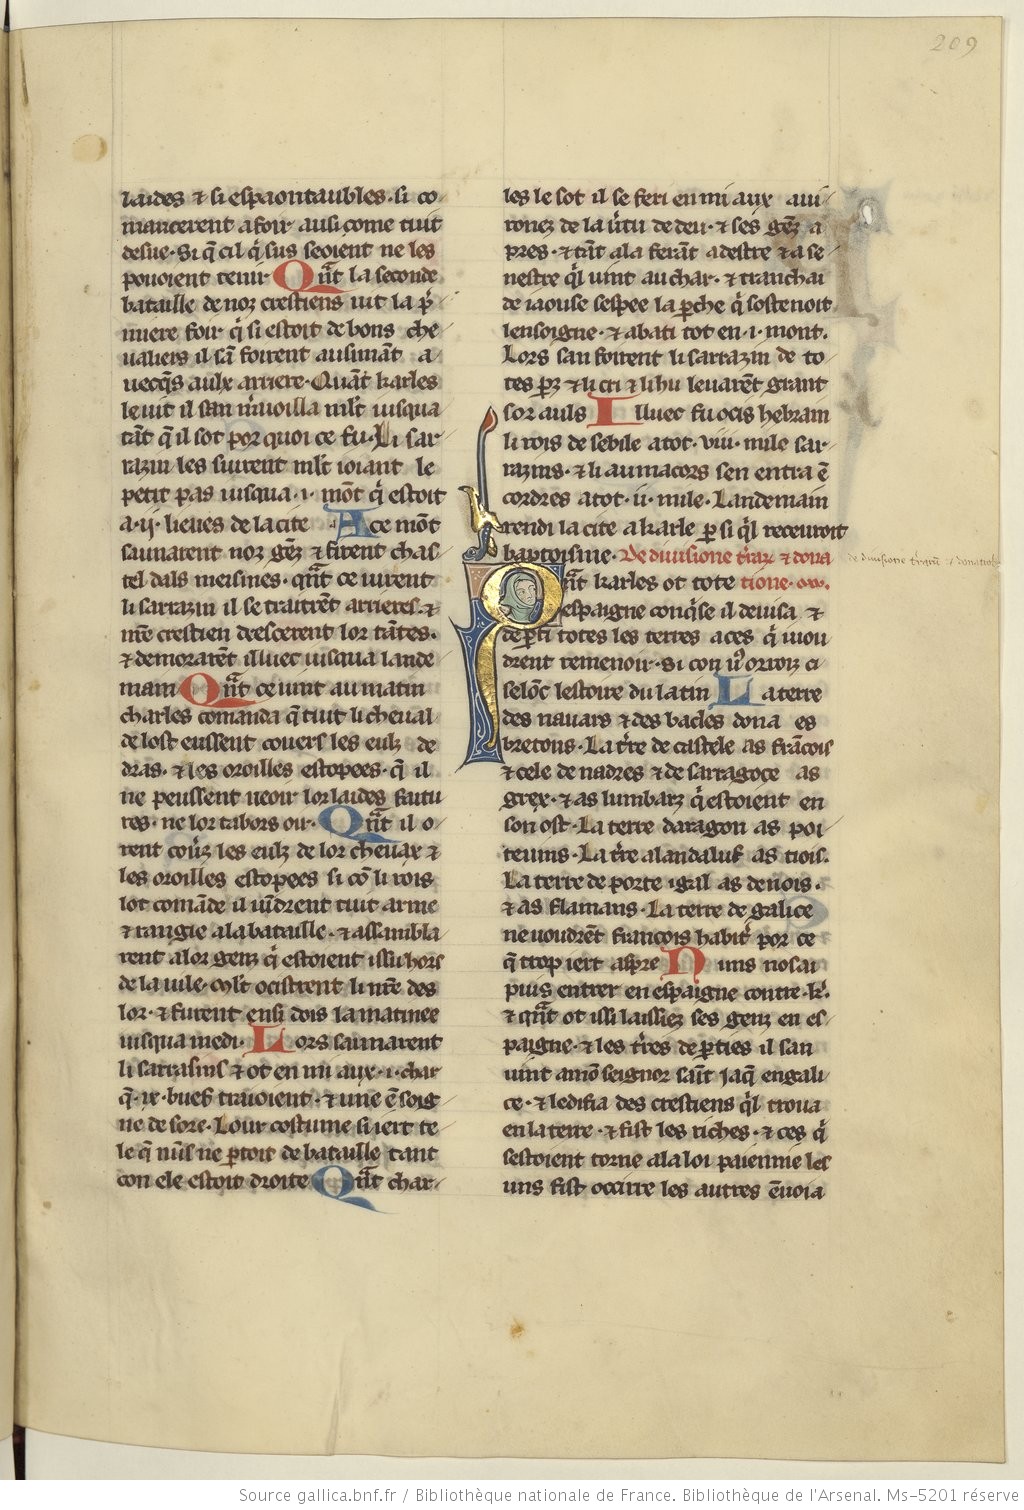 209
laides ⁊ si espaontaubles. si co
mancerent a foir ausi come tuit
desue. Si q̃ cil q̇ sus seoient ne les
pouoient tenir Qñt la seconde
bataille de noz crestiens uit la p̃
miere foir q̇ si estoit de bons che
ualiers il sãt foirent ausimãt a
uecq̃s aulx arriere. Quãt karles
le uit il san m̃uoilla ml̃t iusqua
tãt q̃ il sot por quoi ce fu. Li sar
razin les suirent ml̃t ioiant le
petit pas iusqua .i. mõt q̇ estoit
a .ij. lieues de la cite A ce mõt
saunarent noz gẽz ⁊ firent chas
tel dals meismes. qñt ce uirent
li sarrazin il se traitrẽt arrieres. ⁊
nr̃e crestien descerent lor tãtes.
⁊ demorarẽt illuec iusqua lande
main Qñt ce uint au matin
charles comanda q̃ tuit li cheual
de lost eussent couers les eulz de
dras. ⁊ les oroilles estopees. q̃ il
ne peussent ueoir lor laides faitu
res. ne lor tabors oir. Qñt il o
rent couẽz les eulz de lor cheuax ⁊
les oroilles estopees si cõ li rois
lot comãde il uĩdrent tuit arme
⁊ rangie a la bataille. ⁊ assambla
rent a lor genz q̇ estoient issu hors
de la uile. ml̃t ocistrent li nr̃e des
lor. ⁊ furent ensi dois la matinee
iusqua medi. Lors saunarent
li sarrasins ⁊ ot en mi aux .i. char
q̃ .ix. buef traioient. ⁊ une ẽsoig
ne desore. Lour costume si iert te
le q̃ nũls ne ꝑtoit de bataille tant
con ele estoit droite Qñt char
les le sot il se feri en mi aux aui
ronez de la ũtu de deu. ⁊ ses gẽz a
pres. ⁊ tãt ala ferãt a destre ⁊ a se
nestre q̃l uint au char. ⁊ trancha
de iaouse sespee la ꝑche q̇ sostenoit
lensoigne. ⁊ abati tot en .i. mont.
Lors san foirent li sarrazin de to
tes parz ⁊ li cri ⁊ li hu leuarẽt grant
sor auls Illuec fu ocis hebrain
li rois de sebile a tot .viii. mile sar
razins. ⁊ li aumacors sen entra ẽ
cordres a tot .ii. mile. Landemain
rendi la cite a karle ꝑ si q̃l receuroit
baptoisme. De diuisione t̃raꝝ ⁊ dona
Qñt karles ot tote tione. .xix.
espaigne conq̃se il deuisa ⁊
de ꝑti totes les terres a ces q̇ uiou
drent remenoir. Si con uꝰ orroiz ci
selõc lestoire du latin La terre
des nauars ⁊ des bacles dona es
bretons. La t̃re de castele as frãcois
⁊ cele de nadres ⁊ de sarragoce as
grex. ⁊ as lumbarz q̇ estoient en
son ost. La terre daragon as poi
teuins. La t̃re alandaluf as tiois.
La terre de porte igal as denois.
⁊ as flamans. La terre de galice
ne uoudrẽt francois habit̃ por ce
q̃ trop iert aspre Nuns nosai
puis entrer en espaigne contre .k̃.
⁊ qñt ot issi laissiez ses genz en es
paigne. ⁊ les t̃res de ꝑties il san
uint a mõseignor saĩt jaq̃ en gali
ce. ⁊ ledifia des crestiens q̃l troua
en la terre. ⁊ fist les riches. ⁊ ces q̇
sestoient torne a la loi paienme les
uns fist occirre les autres ẽuoia
de diuisione t̃rarum ⁊ donatione
Source gallica.bnf.fr / Bibliothèque nationale de France. Bibliothèque de l'Arsenal. Ms-5201 réserve